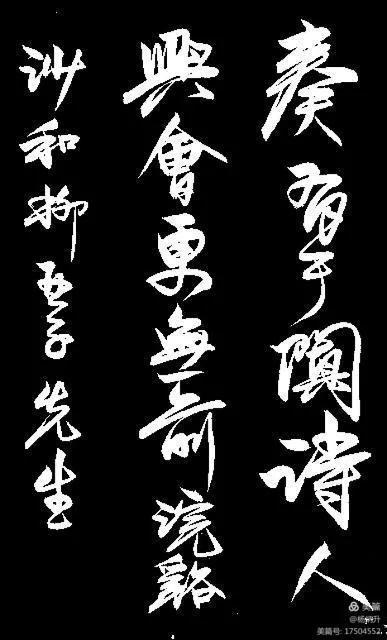 奏有于闐詩人
興會更無前浣谿
沙和柳亞子先生
美篇
美篇号: 17504552